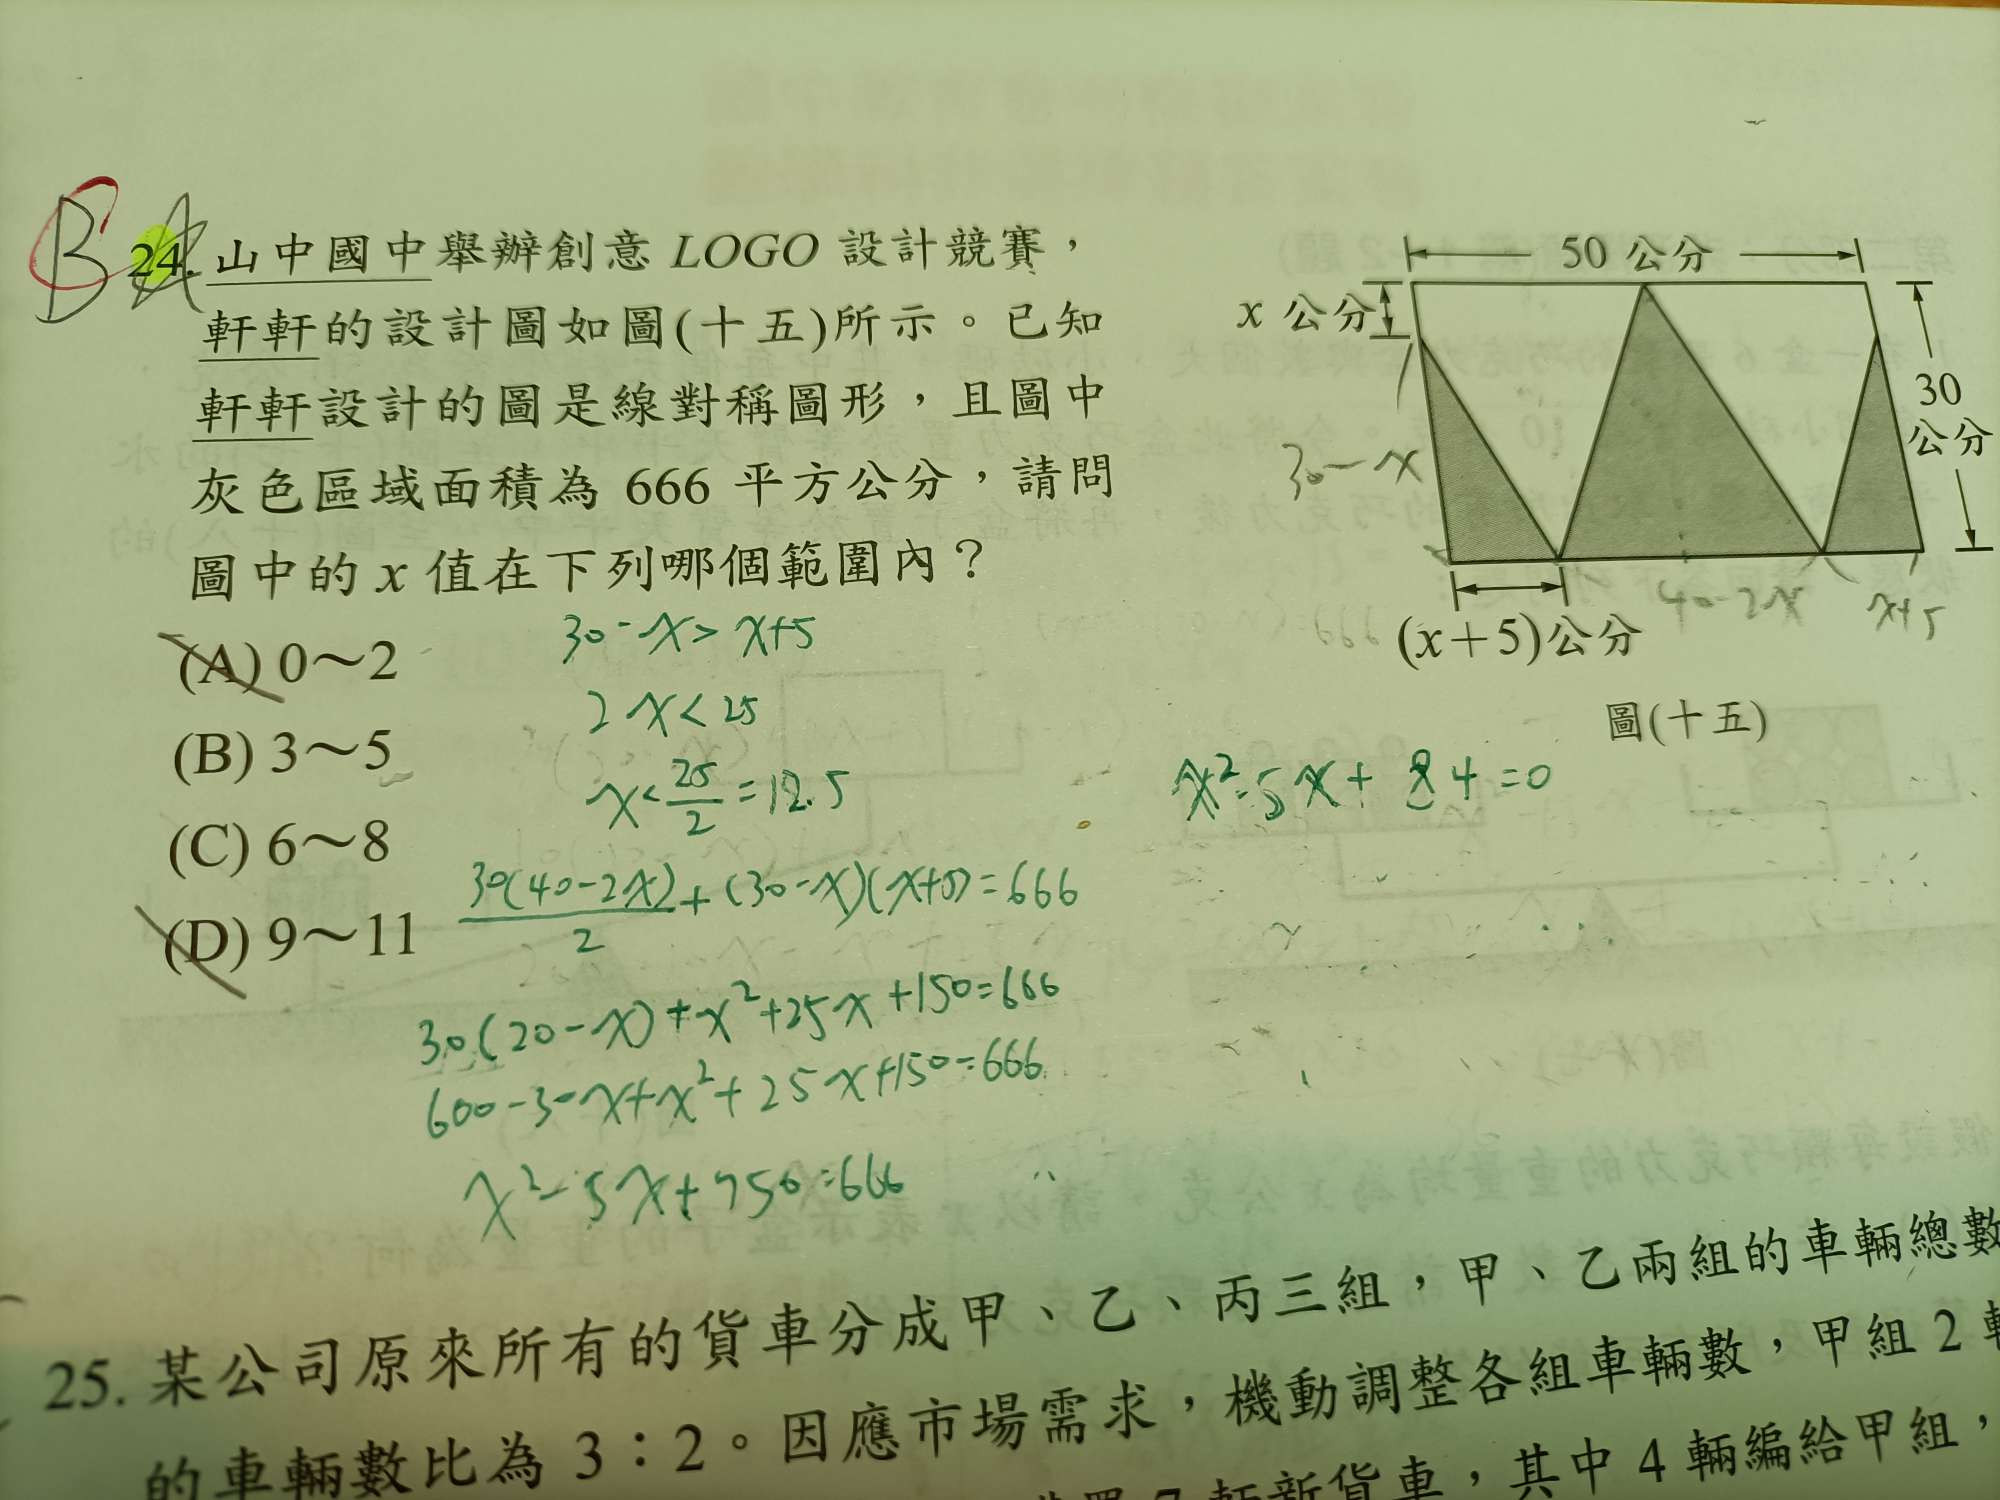 B
24. 山中國中舉辦創意 LOGO 設計競賽，
軒軒的設計圖如圖(十五)所示。已知
軒軒設計的圖是線對稱圖形，且圖中
灰色區域面積為 666 平方公分，請問
圖中的 x 值在下列哪個範圍內？
(A) 0～2
(B) 3～5
(C) 6～8
(D) 9～11
50 公分
x 公分
30
公分
30-x
40-2x
x+5
(x＋5)公分
圖(十五)
30-x>x+5
2x<25
x<25/2=12.5
30(40-2x)/2+(30-x)(x+5)=666
30(20-x)+x²+25x+150=666
600-30x+x²+25x+150=666
x²-5x+750=666
x²-5x+84=0
25. 某公司原來所有的貨車分成甲、乙、丙三組，甲、乙兩組的車輛總數
的車輛數比為 3：2。因應市場需求，機動調整各組車輛數，甲組 2
新貨車，其中 4 輛編給甲組，